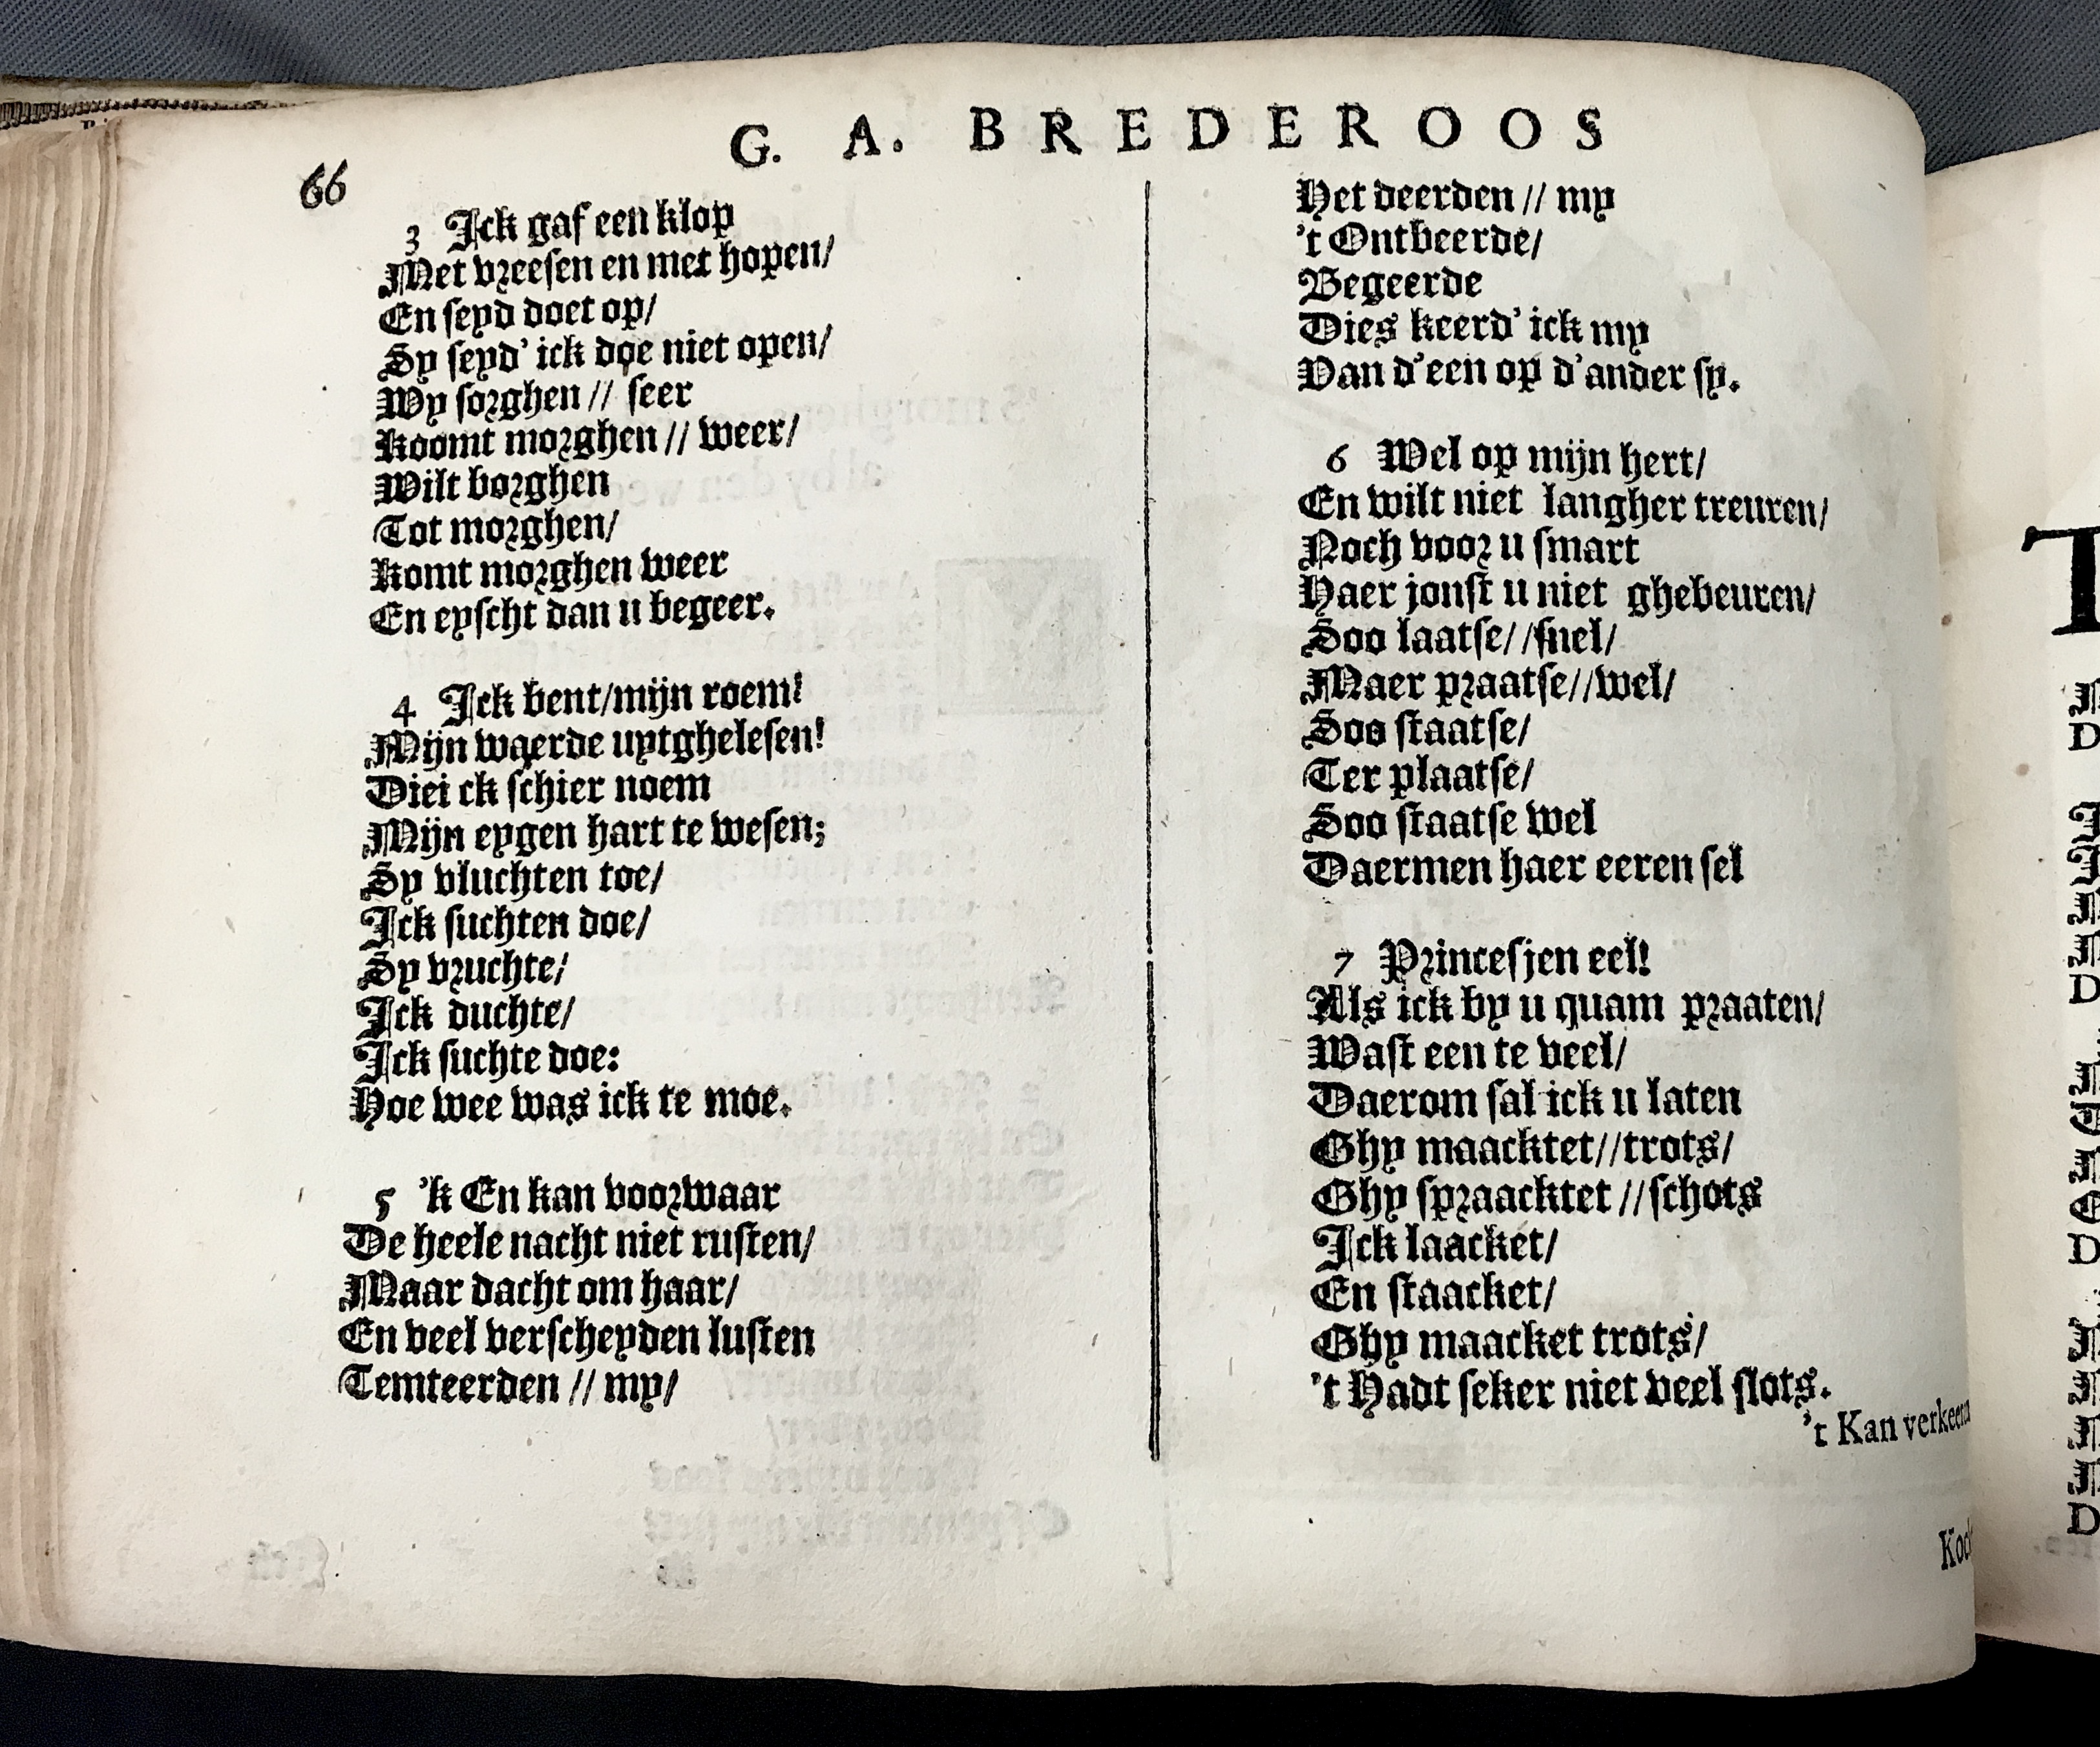 G. A. BREDEROOS
66
3 Ick gaf een klop
Met vreesen en met hopen/
En seyd doet op/
Sy seyd' ick doe niet open/
Wy sorghen // seer
Koomt morghen // weer/
Wilt borghen
Tot morghen/
Komt morghen weer
En eyscht dan u begeer.
4 Ick bent/mijn roem!
Mijn waerde uytghelesen!
Diei ck schier noem
Mijn eygen hart te wesen;
Sy vluchten toe/
Ick suchten doe/
Sy vruchte/
Ick duchte/
Ick suchte doe:
Hoe wee was ick te moe.
5 'k En kan voorwaar
De heele nacht niet rusten/
Maar dacht om haar/
En veel verscheyden lusten
Temteerden // my/
Het deerden // my
't Ontbeerde/
Begeerde
Dies keerd' ick my
Van d'een op d'ander sy.
6 Wel op mijn hert/
En wilt niet langher treuren/
Noch voor u smart
Haer jonst u niet ghebeuren/
Soo laatse//snel/
Maer praatse//wel/
Soo staatse/
Ter plaatse/
Soo staatse wel
Daermen haer eeren sel
7 Princesjen eel!
Als ick by u quam praaten/
Wast een te veel/
Daerom sal ick u laten
Ghy maacktet//trots/
Ghy spraacktet //schots
Ick laacket/
En staacket/
Ghy maacket trots/
't Hadt seker niet veel slots.
't Kan